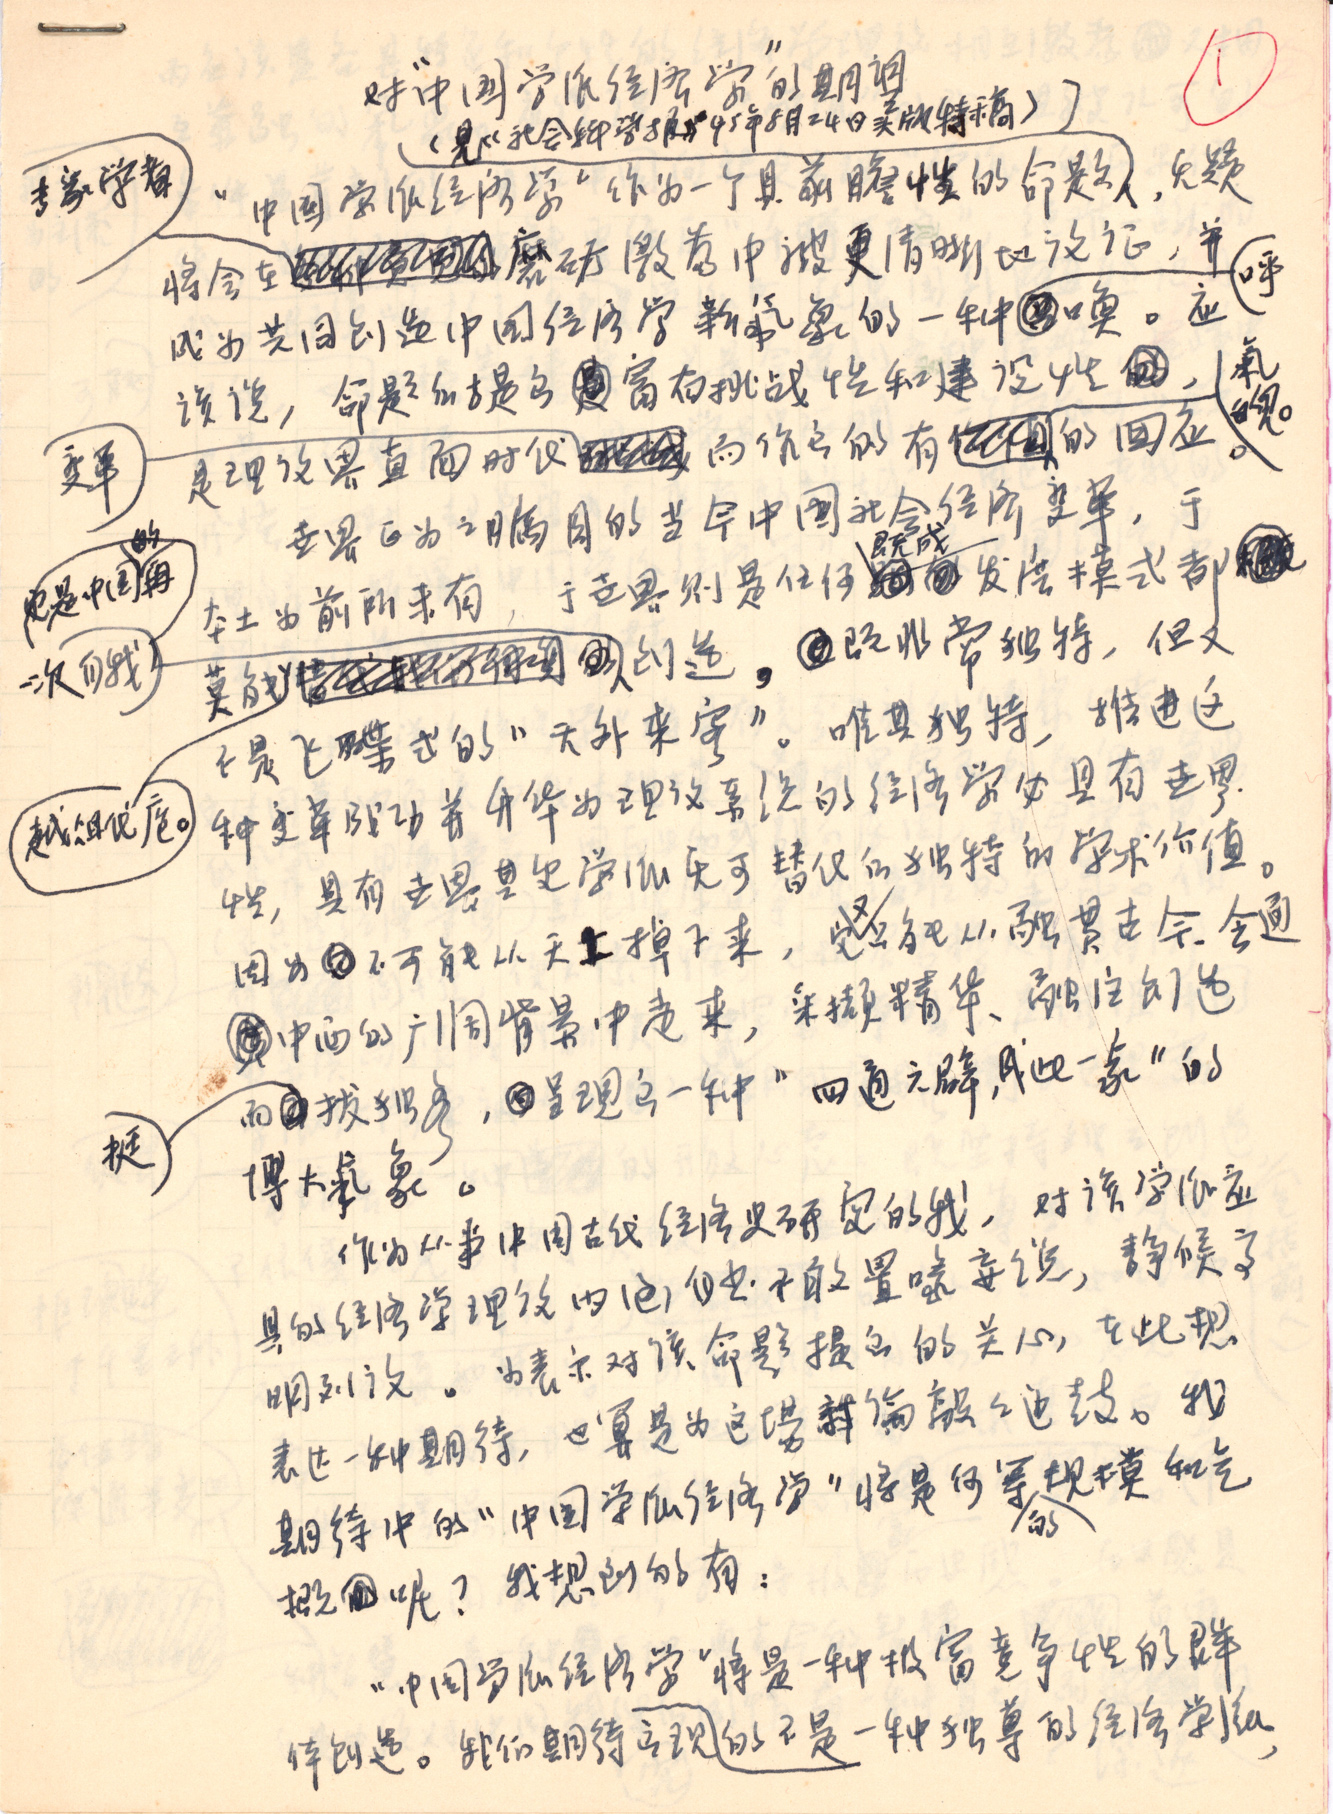 ①
对“中国学派经济学”的期望
（见《社会科学报》95年8月24日头版特稿）
专家学者
“中国学派经济学”作为一个具前瞻性的命题，无疑
将会在磨砺激荡中被更清晰地论证，并
呼
成为共同创造中国经济学新氣象的一种唤。应
该说，命题的提出富有挑战性和建设性，
氣魄。
变革
是理论界直面时代而作出的有的回应。
世界正为之瞩目的当今中国社会经济变革，于
既成
也是中国的再一次自我
本土为前所未有，于世界则是任何发展模式都
莫能创造，既非常独特，但又
不是飞碟式的“天外来客”。唯其独特，推进这
越俎代庖。
种变革成功并升华为理论系统的经济学必具有世界
性，具有世界其它学派无可替代的独特的学术价值。
因为不可能从天上掉下来，又只能从融贯古今、会通
中西的广阔背景中走来，采撷精华、融注创造
挺
而拔独秀，呈现出一种“四通六辟，成此一家”的
博大氣象。
作为从事中国古代经济史研究的我，对该学派应
具的经济学理论内涵，自当不敢置喙妄说，静候高
明列论。为表示对该命题提出的关心，在此想
表达一种期待，也算是为这场討論敲敲边鼓。我
期待中的“中国学派经济学”将是何等的规模和气
概呢？我想到的有：
“中国学派经济学”将是一种极富竞争性的群
体创造。我们期待出现的不是一种独尊的经济学派，